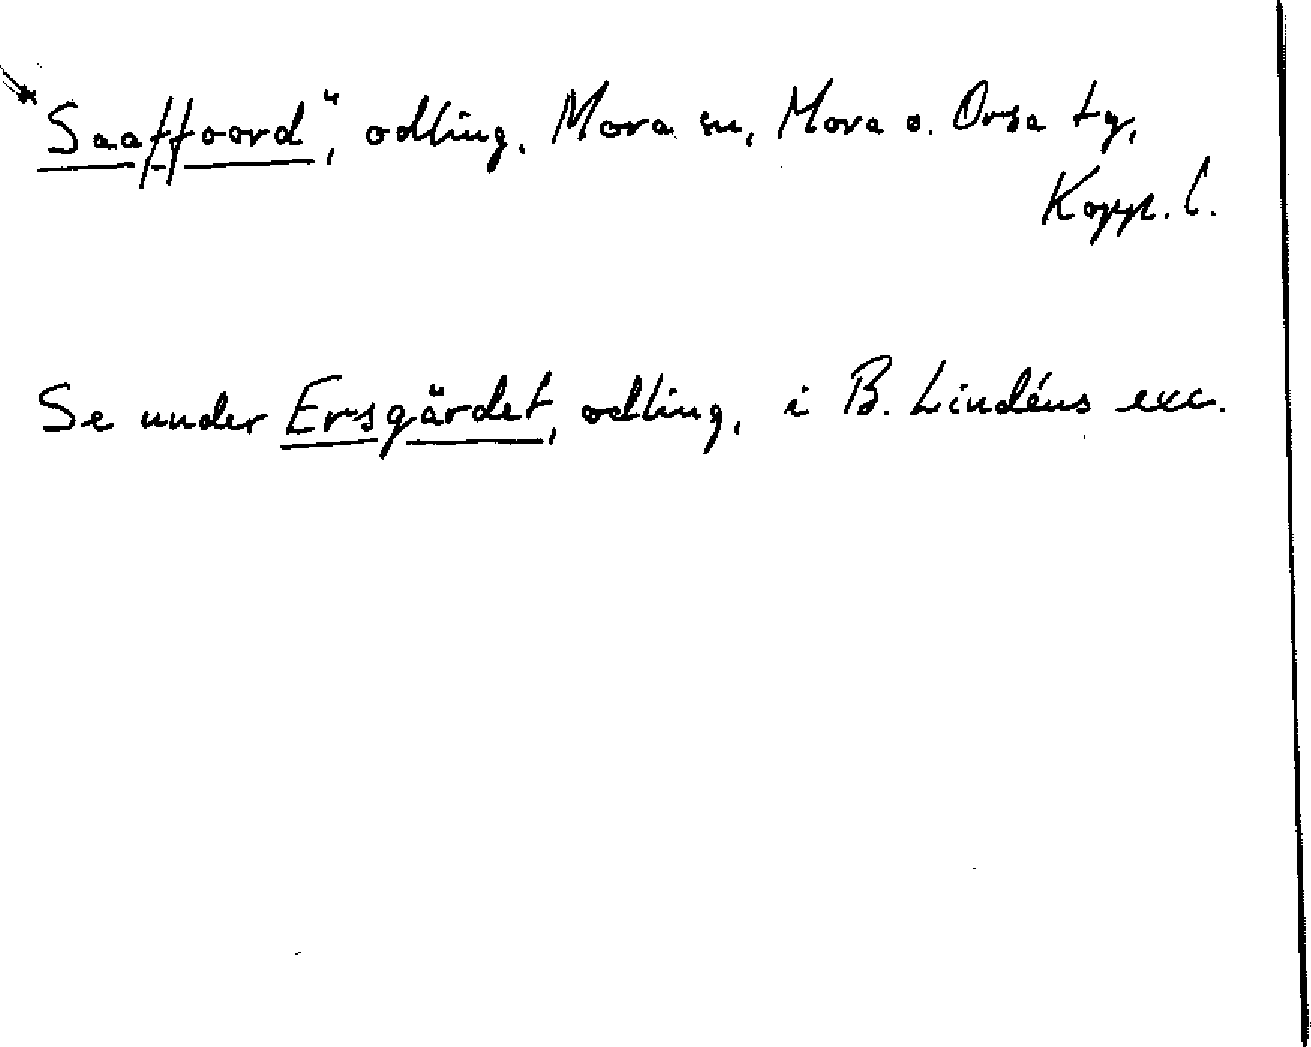 "Saaffoord", odling, Mora sn, Mora o. Orsa tg,
Kopp. l.
Se under Ersgärdet, odling, i B. Lindéns exc.